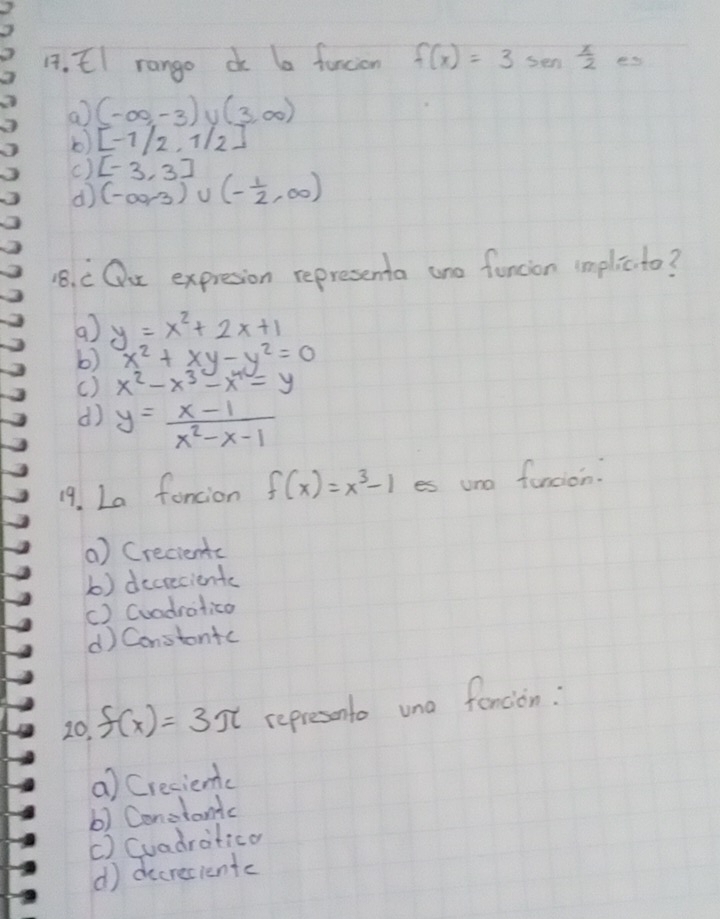 17. El rango de la funcion f(x) = 3 sen x/2 es
a) (-∞,-3) ∪ (3,∞)
b) [-1/2, 1/2]
c) [-3, 3]
d) (-∞,-3) ∪ (-1/2, ∞)
18. ¿ Que expresion representa una funcion implícita?
a) y = x² + 2x + 1
b) x² + xy - y² = 0
c) x² - x³ - x⁴ = y
d) y = (x - 1)/(x² - x - 1)
19. La funcion f(x) = x³ - 1 es una función:
a) Creciente
b) decreciente
c) Cuadratica
d) Constante
20. f(x) = 3π representa una función:
a) Creciente
b) Constante
c) Cuadrática
d) decreciente